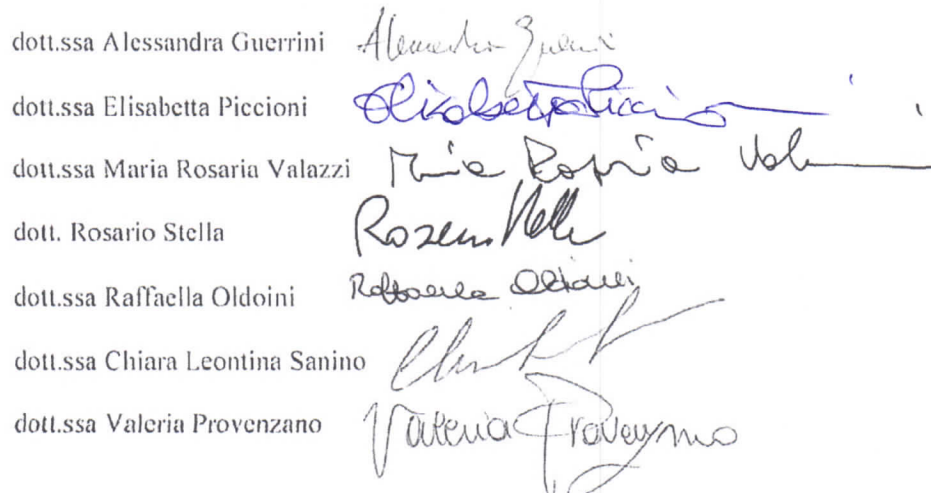 dott.ssa Alessandra Guerrini Alessandra Guerrini
dott.ssa Elisabetta Piccioni Elisabetta Piccioni
dott.ssa Maria Rosaria Valazzi Maria Rosaria
dott. Rosario Stella Rosario Stella
dott.ssa Raffaella Oldoini Raffaella Oldoini
dott.ssa Chiara Leontina Sanino
dott.ssa Valeria Provenzano Valeria Provenzano